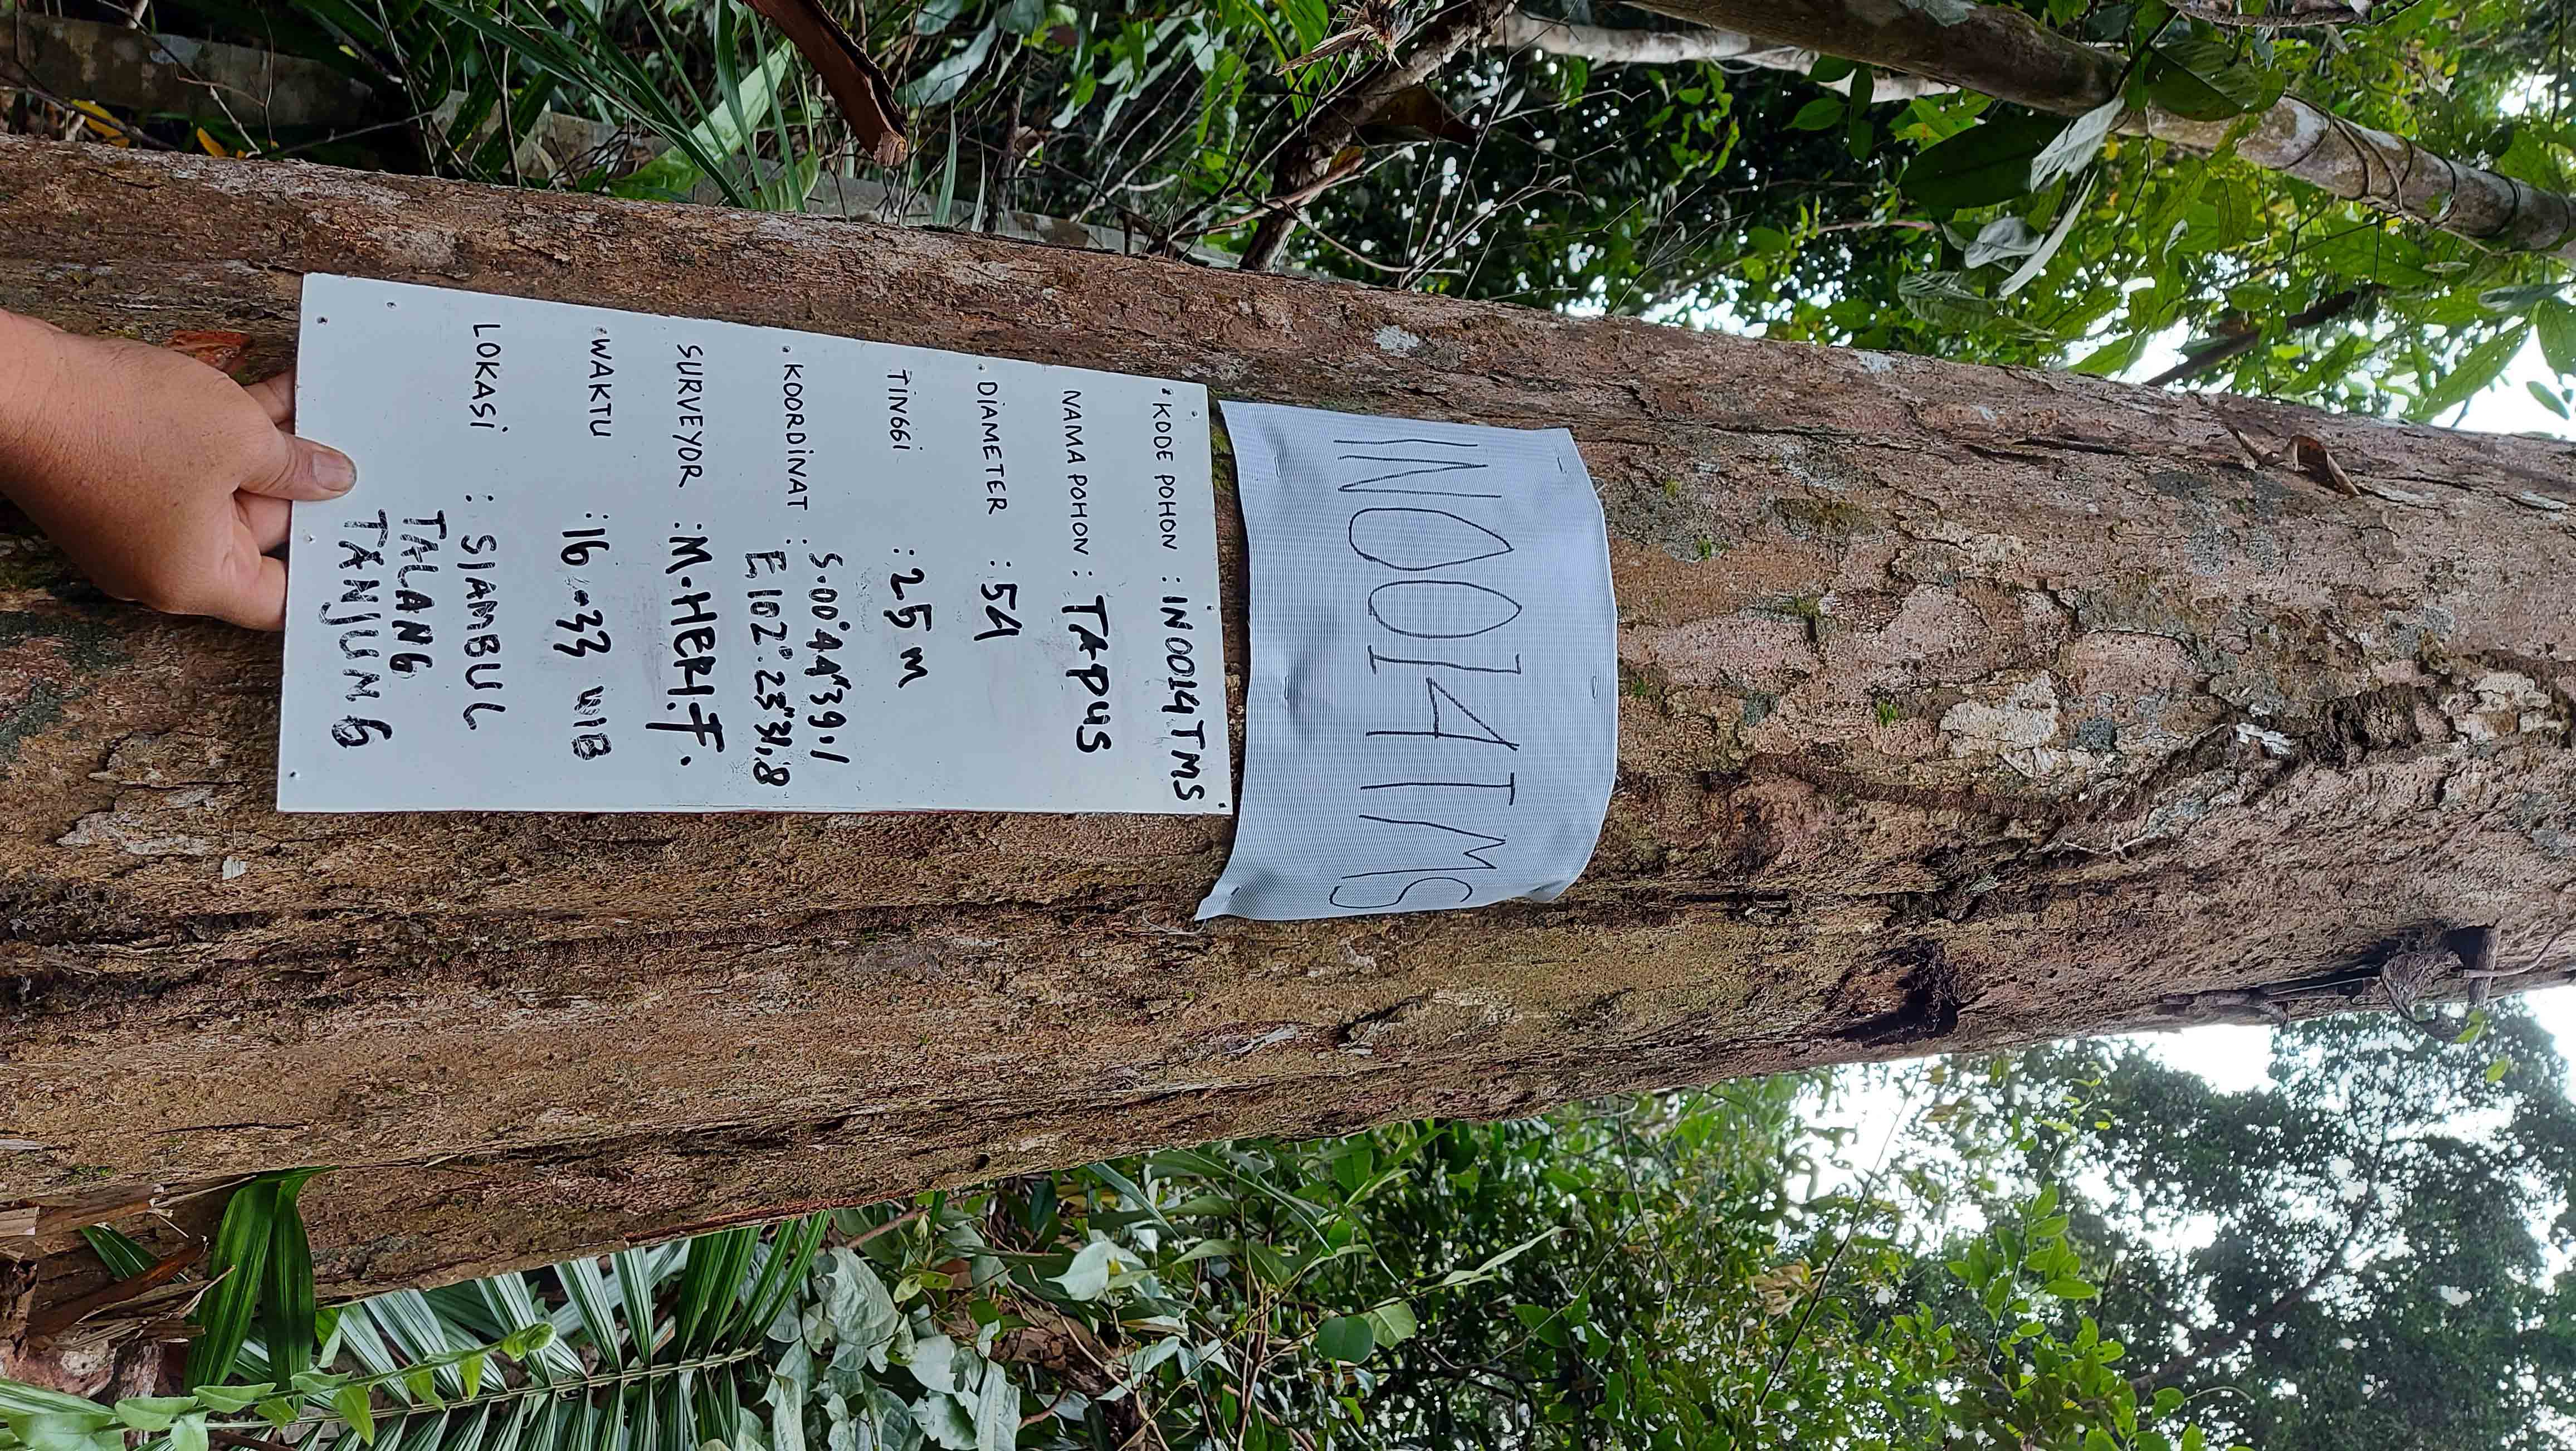 IN0014TMS
KODE POHON : IN0014TMS
NAMA POHON : TAPUS
DIAMETER : 54
TINGGI : 25 M
KOORDINAT : S.00°44"39.1
E.102°.23"31,8
SURVEYOR : M.HERI.F.
WAKTU : 16.33 WIB
LOKASI : SIAMBUL
TALANG
TANJUNG